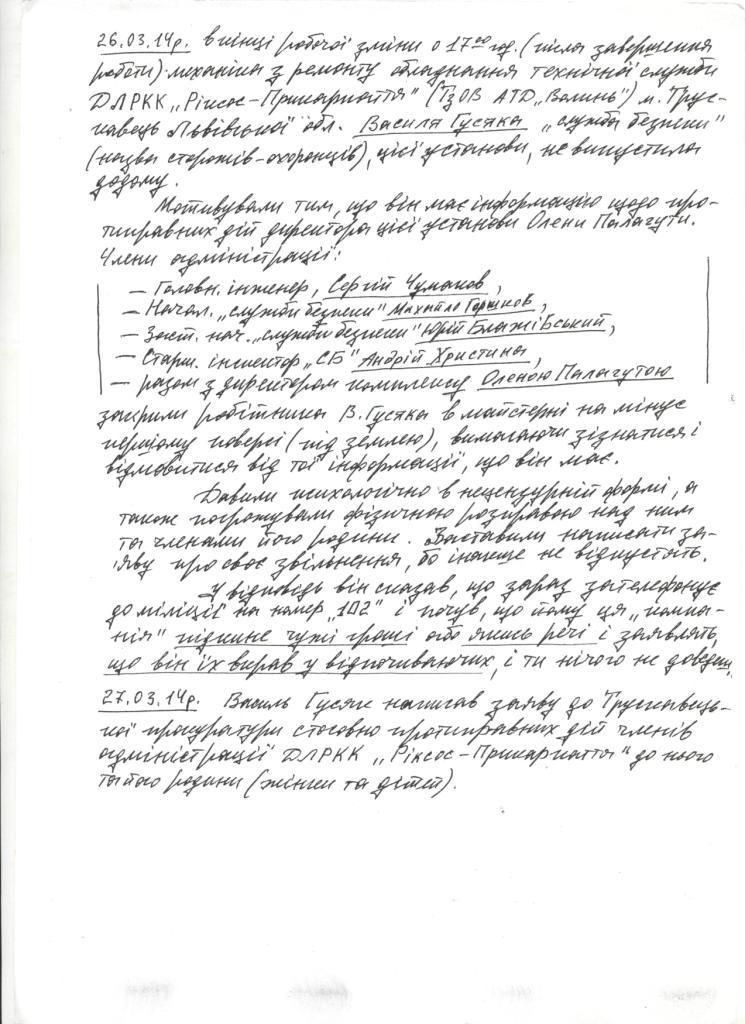 26.03.14р. в кінці робочої зміни о 17⁰⁰ год. (після завершення
роботи) механіка з ремонту обладнання технічної служби
ДЛРКК „Ріксос-Прикарпаття" (ТзОВ АТД „Волинь") м. Трус-
кавець Львівської обл. Василя Гусяка „служба безпеки"
(назва сторожів-охоронців), цієї установи, не випустила
додому.
Мотивували тим, що він має інформацію щодо про-
типравних дій директора цієї установи Олени Палагути.
Члени адміністрації:
— Головн. інженер, Сергій Чумаков,
— Начал. „служби безпеки" Михайло Горшков,
— Заст. нач. „служби безпеки" Юрій Блажівський,
— Старш. інспектор „СБ" Андрій Христина,
— разом з директором комплексу Оленою Палагутою
закрили робітника В. Гусяка в майстерні на мінус
першому поверсі (під землею), вимагаючи зізнатися і
відмовитися від тої інформації, що він має.
Давили психологічно в нецензурній формі, а
також погрожували фізичною розправою над ним
та членами його родини. Заставили написати за-
яву про своє звільнення, бо інакше не відпустять.
У відповідь він сказав, що зараз зателефонує
до міліції на номер „102" і почув, що йому ця „компа-
нія" підкине чужі гроші або якись речі і заявлять,
що він їх вкрав у відпочиваючих, і ти нічого не доведеш.
27.03.14р. Василь Гусяк написав заяву до Трускавець-
кої прокуратури стосовно протиправних дій членів
адміністрації ДЛРКК „Ріксос-Прикарпаття" до нього
та його родини (жінки та дітей).